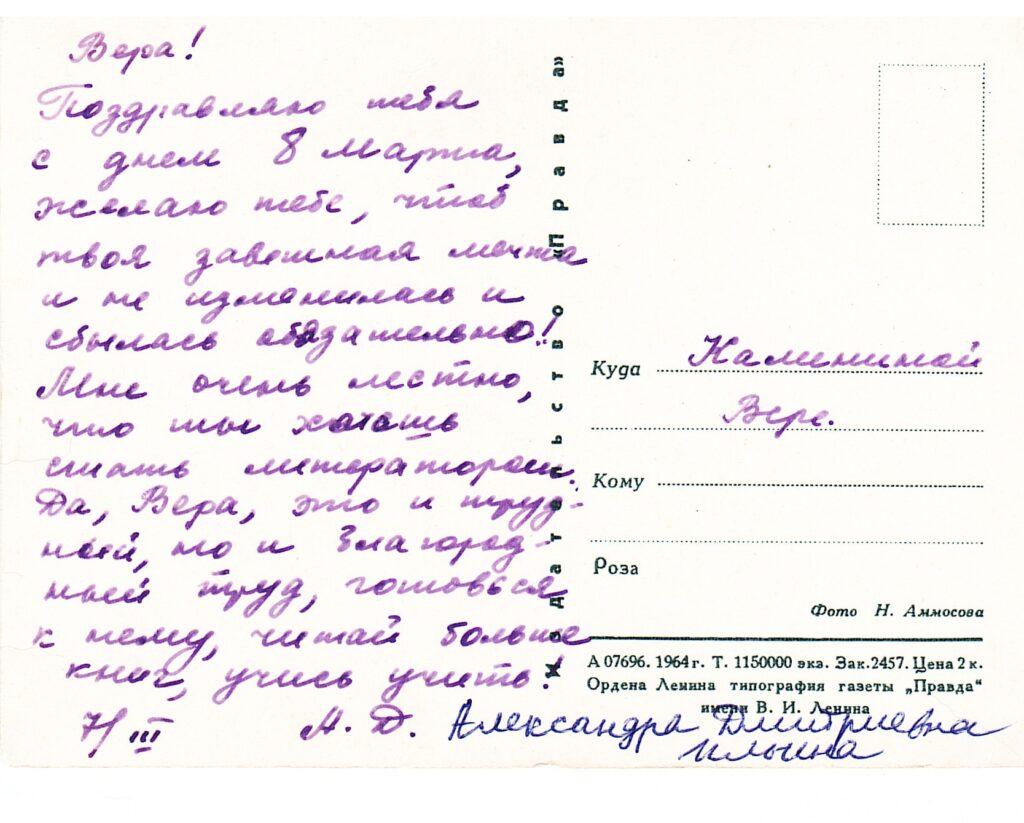 Вера!
Поздравляю тебя
с днем 8 Марта,
желаю тебе, чтоб
твоя заветная мечта
и не изменилась и
сбылась обязательно!
Мне очень лестно,
что ты хочешь
стать литератором.
Да, Вера, это и труд-
ный, но и благород-
ный труд, готовься
к нему, читай больше
книг, учись учить!
7/III А. Д.
Александра Дмитриевна
Ильина
Издательство «Правда»
Куда Калининой
Вере.
Кому
Роза
Фото Н. Аммосова
А 07696. 1964 г. Т. 1150000 экз. Зак.2457. Цена 2 к.
Ордена Ленина типография газеты „Правда“
имени В. И. Ленина